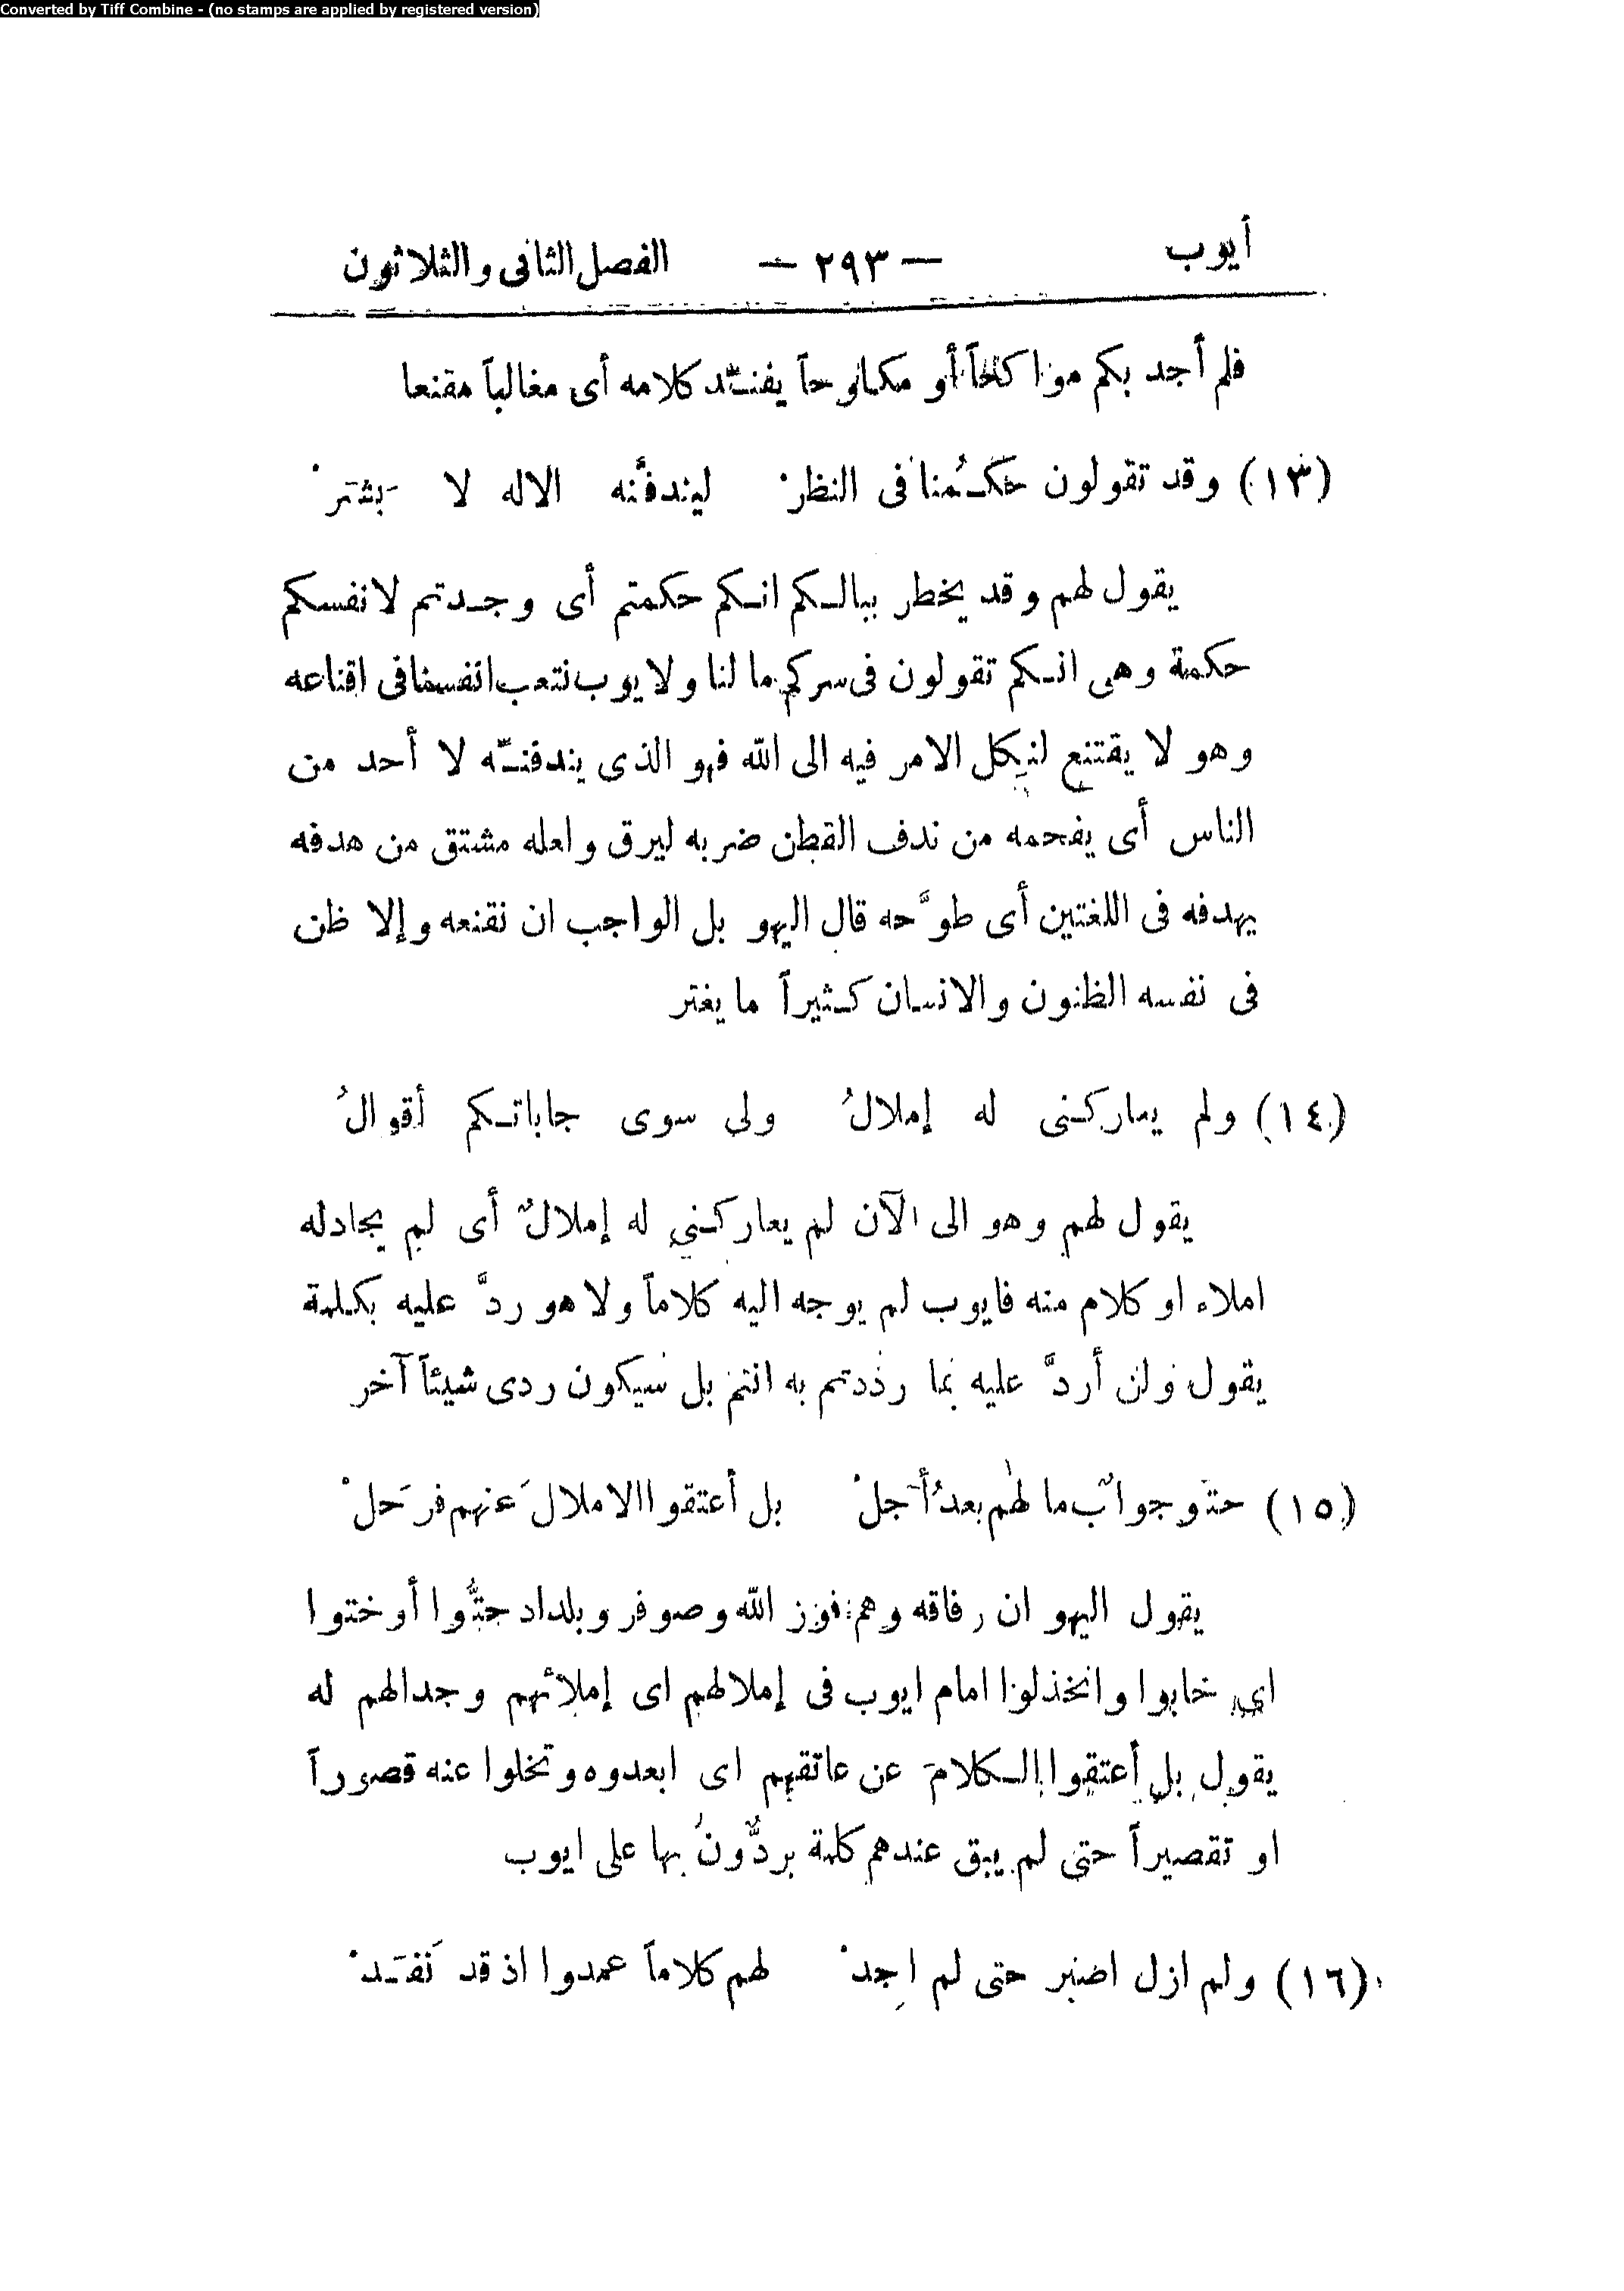 Converted by Tiff Combine - (no stamps are applied by registered version)
أيوب — ٢٩٣ — الفصل الثانى والثلاثون
فلم أجد بكم مواكحاً أو مكاوحاً يفنّد كلامه أى مغالباً مقنعا
(١٣) وقد تقولون حكمُنا فى النظرْ ليندفنَّه الاله لا بَشَرْ
يقول لهم وقد يخطر ببالكم انكم حكمتم أى وجدتم لانفسكم
حكمة وهى انكم تقولون فى سركم ما لنا ولايوب نتعب انفسنا فى اقناعه
وهو لا يقتنع لنكل الامر فيه الى الله فهو الذى يندفنّه لا أحد من
الناس أى يفحمه من ندف القطن ضربه ليرق ولعله مشتق من هدفه
يهدفه فى اللغتين أى طوَّحه قال اليهو بل الواجب ان نقنعه وإلا ظن
فى نفسه الظنون والانسان كثيراً ما يغتر
(١٤) ولم يعاركنى له إملالُ ولى سوى جاباتكم أقوالُ
يقول لهم وهو الى الآن لم يعاركني له إملالٌ أى لم يجادله
املاء او كلام منه فايوب لم يوجه اليه كلاماً ولا هو ردَّ عليه بكلمة
يقول ولن أردَّ عليه بما رددتم به انتم بل سيكون ردى شيئاً آخر
(١٥) حتوا جوابٌ ما لهم بعدُ أجلْ بل أعتقوا الاملالَ عنهم فرَحلْ
يقول اليهو ان رفاقه وهم فوز الله وصوفر وبلداد حتُّوا أو ختوا
اي خابوا وانخذلوا امام ايوب فى إملالهم اى إملائهم وجدالهم له
يقول بل أعتقوا الكلامَ عن عاتقهم اى ابعدوه وتخلوا عنه قصوراً
او تقصيراً حتى لم يبق عندهم كلمة يردُّونُ بها على ايوب
(١٦) ولم ازل اصبر حتى لم اجدْ لهم كلاماً عمدوا اذ قد نَفَدْ